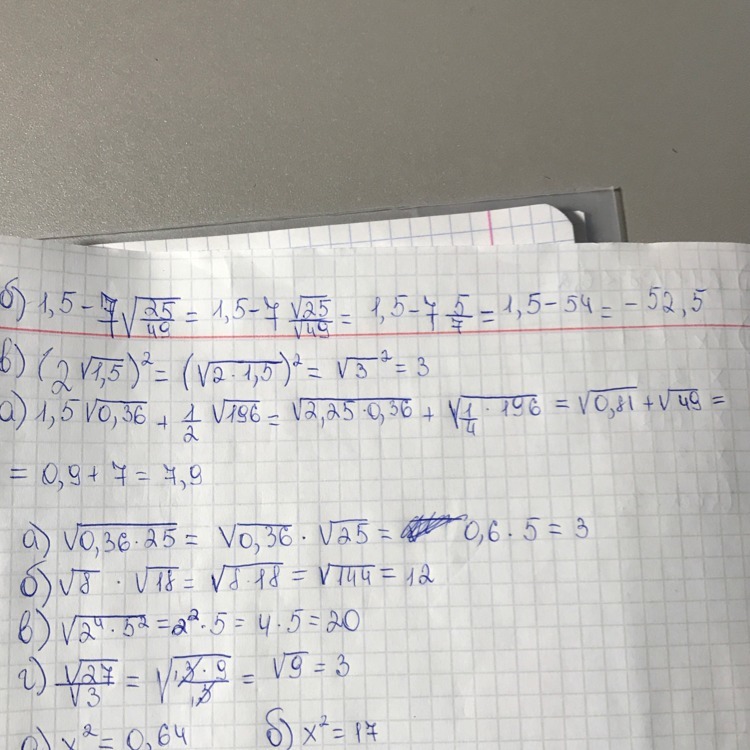 б) 1,5 - 7 √(25/49) = 1,5 - 7 √25/√49 = 1,5 - 7 5/7 = 1,5 - 54 = - 52,5
в) (2 √1,5)² = (√(2 · 1,5))² = √3² = 3
а) 1,5 √0,36 + 1/2 √196 = √(2,25 · 0,36) + √(1/4 · 196) = √0,81 + √49 =
= 0,9 + 7 = 7,9
а) √(0,36 · 25) = √0,36 · √25 = 0,6 · 5 = 3
б) √8 · √18 = √(8 · 18) = √144 = 12
в) √(2⁴ · 5²) = 2² · 5 = 4 · 5 = 20
г) √27/√3 = √(3 · 9/3) = √9 = 3
а) x² = 0,64 б) x² = 17